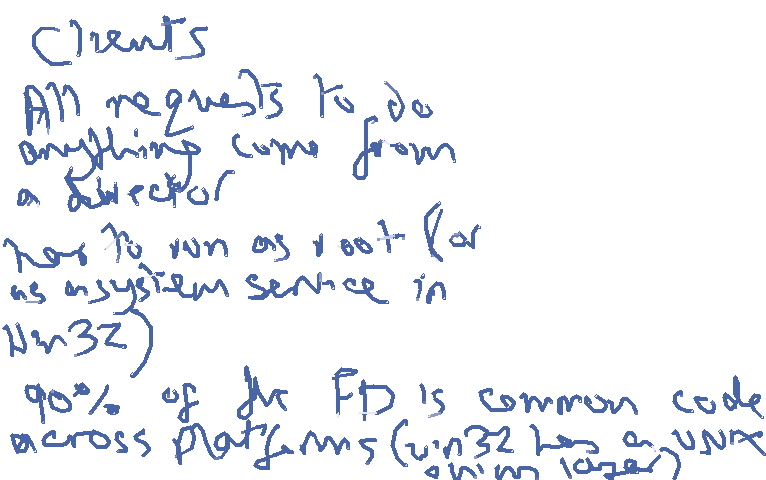 Clients
All requests to do
anything come from
a director
has to run as root (or
as a system service in
Win32)
90% of the FD is common code
across platforms (win32 has a UNIX
shim layer)